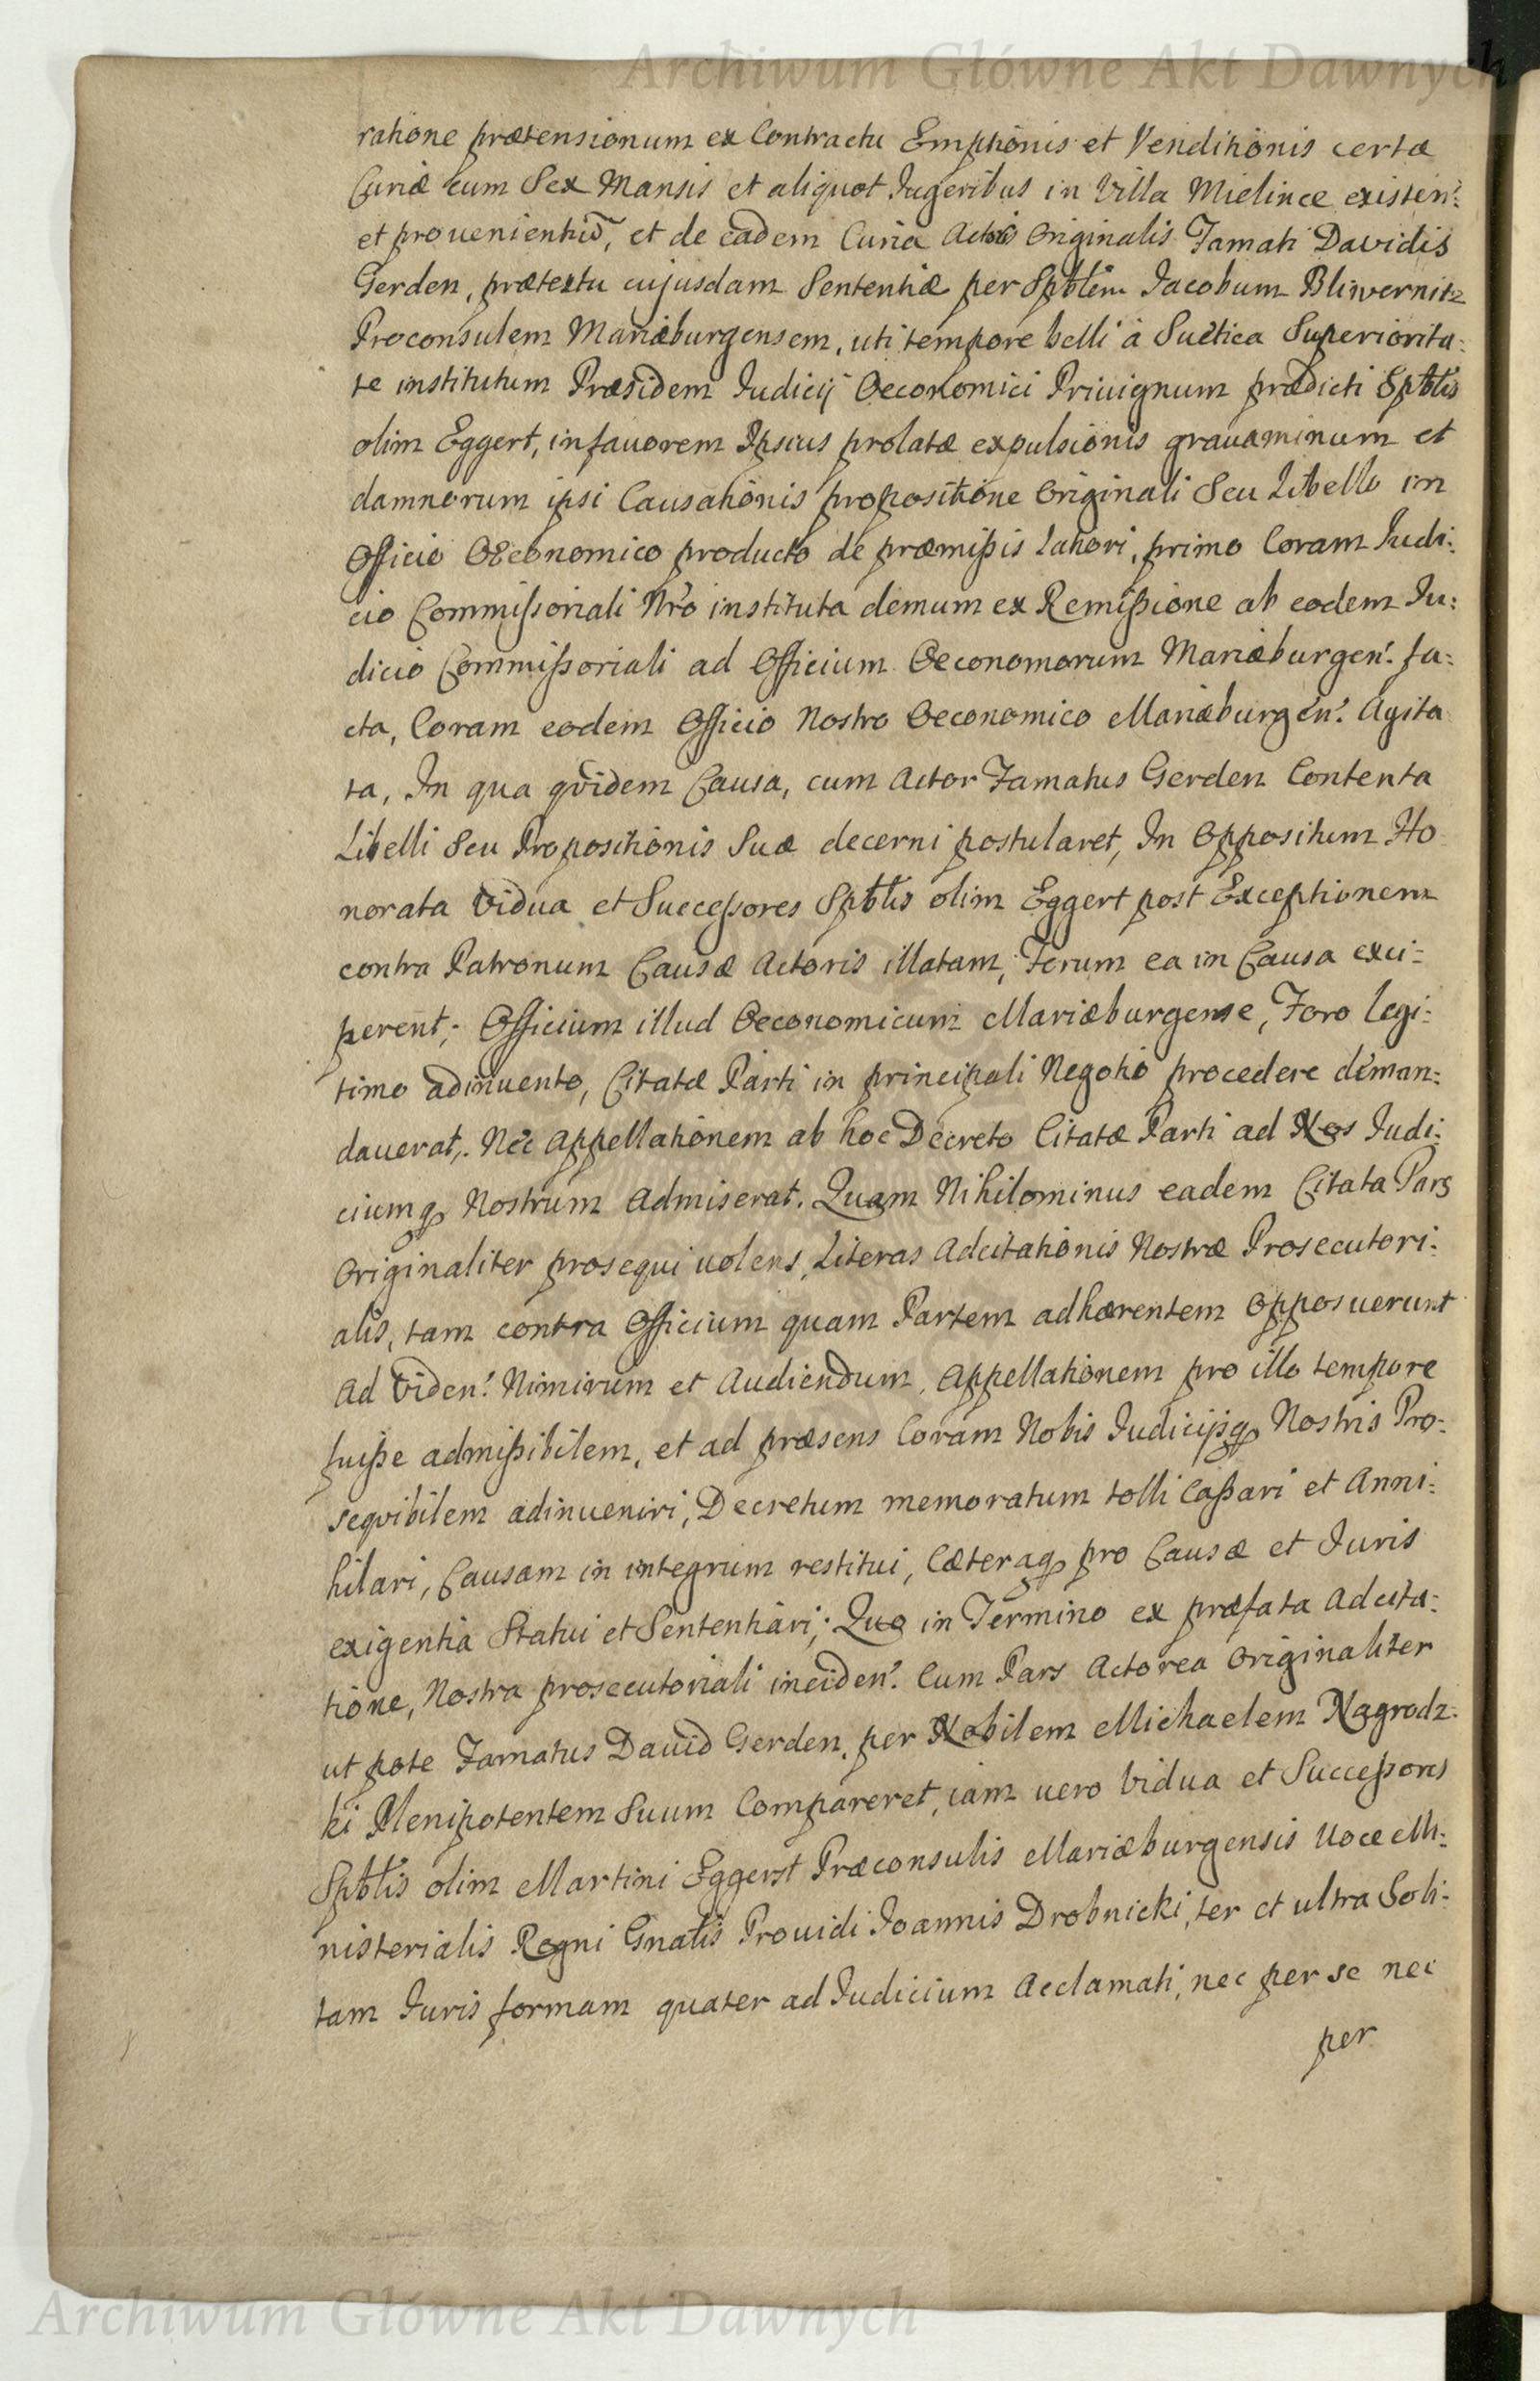 Archiwum Główne Akt Dawnych
ratione prætensionum ex Contractu Emptionis et Venditionis certæ
Curiæ cum Sex Mansis et aliquot Jugeribus in Villa Mielince existen:
et provenientiũ, et de eadem Curia Actoris Originalis Famati Davidis
Gerden, prætextu cujusdam Sententiæ per Spbtlem Jacobum Bliwernitz
Proconsulem Mariæburgensem, uti tempore belli á Suetica Superiorita:
te institutum Præsidem Judicij Oeconomici Privignum prædicti Spbtlis
olim Eggert, in favorem Ipsius prolatæ expulsionis gravaminum et
damnorum ipsi Causationis propositione Originali Seu Libello in
Officio Oeconomico producto de præmißis latiori, primo Coram Judi:
cio Commißoriali Nro instituta demum ex Remißione ab eodem Ju:
dicio Commißoriali ad Officium Oeconomorum Mariæburgen: fa:
cta, Coram eodem Officio Nostro Oeconomico Mariæburgen: Agita
ta, In qua quidem Causa, cum Actor Famatus Gerden Contenta
Libelli Seu Propositionis Suæ decerni postularet, In Oppositum Ho
norata Vidua et Succeßores Spbtlis olim Eggert post Exceptionem
contra Patronum Causæ Actoris illatam, Forum ea in Causa exci:
perent; Officium illud Oeconomicum Mariæburgense, Foro legi:
timo adinvento, Citatæ Parti in principali Negotio procedere deman:
daverat, Nec Appellationem ab hoc Decreto Citatæ Parti ad Nos Judi:
ciumq Nostrum Admiserat. Quam Nihilominus eadem Citata Pars
Originaliter prosequi volens, Literas Adcitationis Nostræ Prosecutori:
alis, tam contra Officium quam Partem adhærentem Opposuerunt
Ad Viden: Nimirum et Audiendum, Appellationem pro illo tempore
fuiße admißibilem, et ad præsens Coram Nobis Judicijsq Nostris Pro:
sequibilem adinveniri, Decretum memoratum tolli Caßari et Anni:
hilari, Causam in integrum restitui, Cæteraq pro Causæ et Juris
exigentia Statui et Sententiari; Quo in Termino ex præfata Adcita:
tione, Nostra prosecutoriali inciden: Cum Pars Actorea Originaliter
ut pote Famatus David Gerden, per Nobilem Michaelem Nagrodz:
ki Plenipotentem Suum Compareret, iam vero Vidua et Succeßores
Spbtlis olim Martini Eggerst Præconsulis Mariæburgensis Voce Mi:
nisterialis Regni Gnalis Providi Joannis Drobnicki, ter et ultra Soli:
tam Juris formam quater ad Judicium Acclamati, nec per se nec
per
Archiwum Główne Akt Dawnych